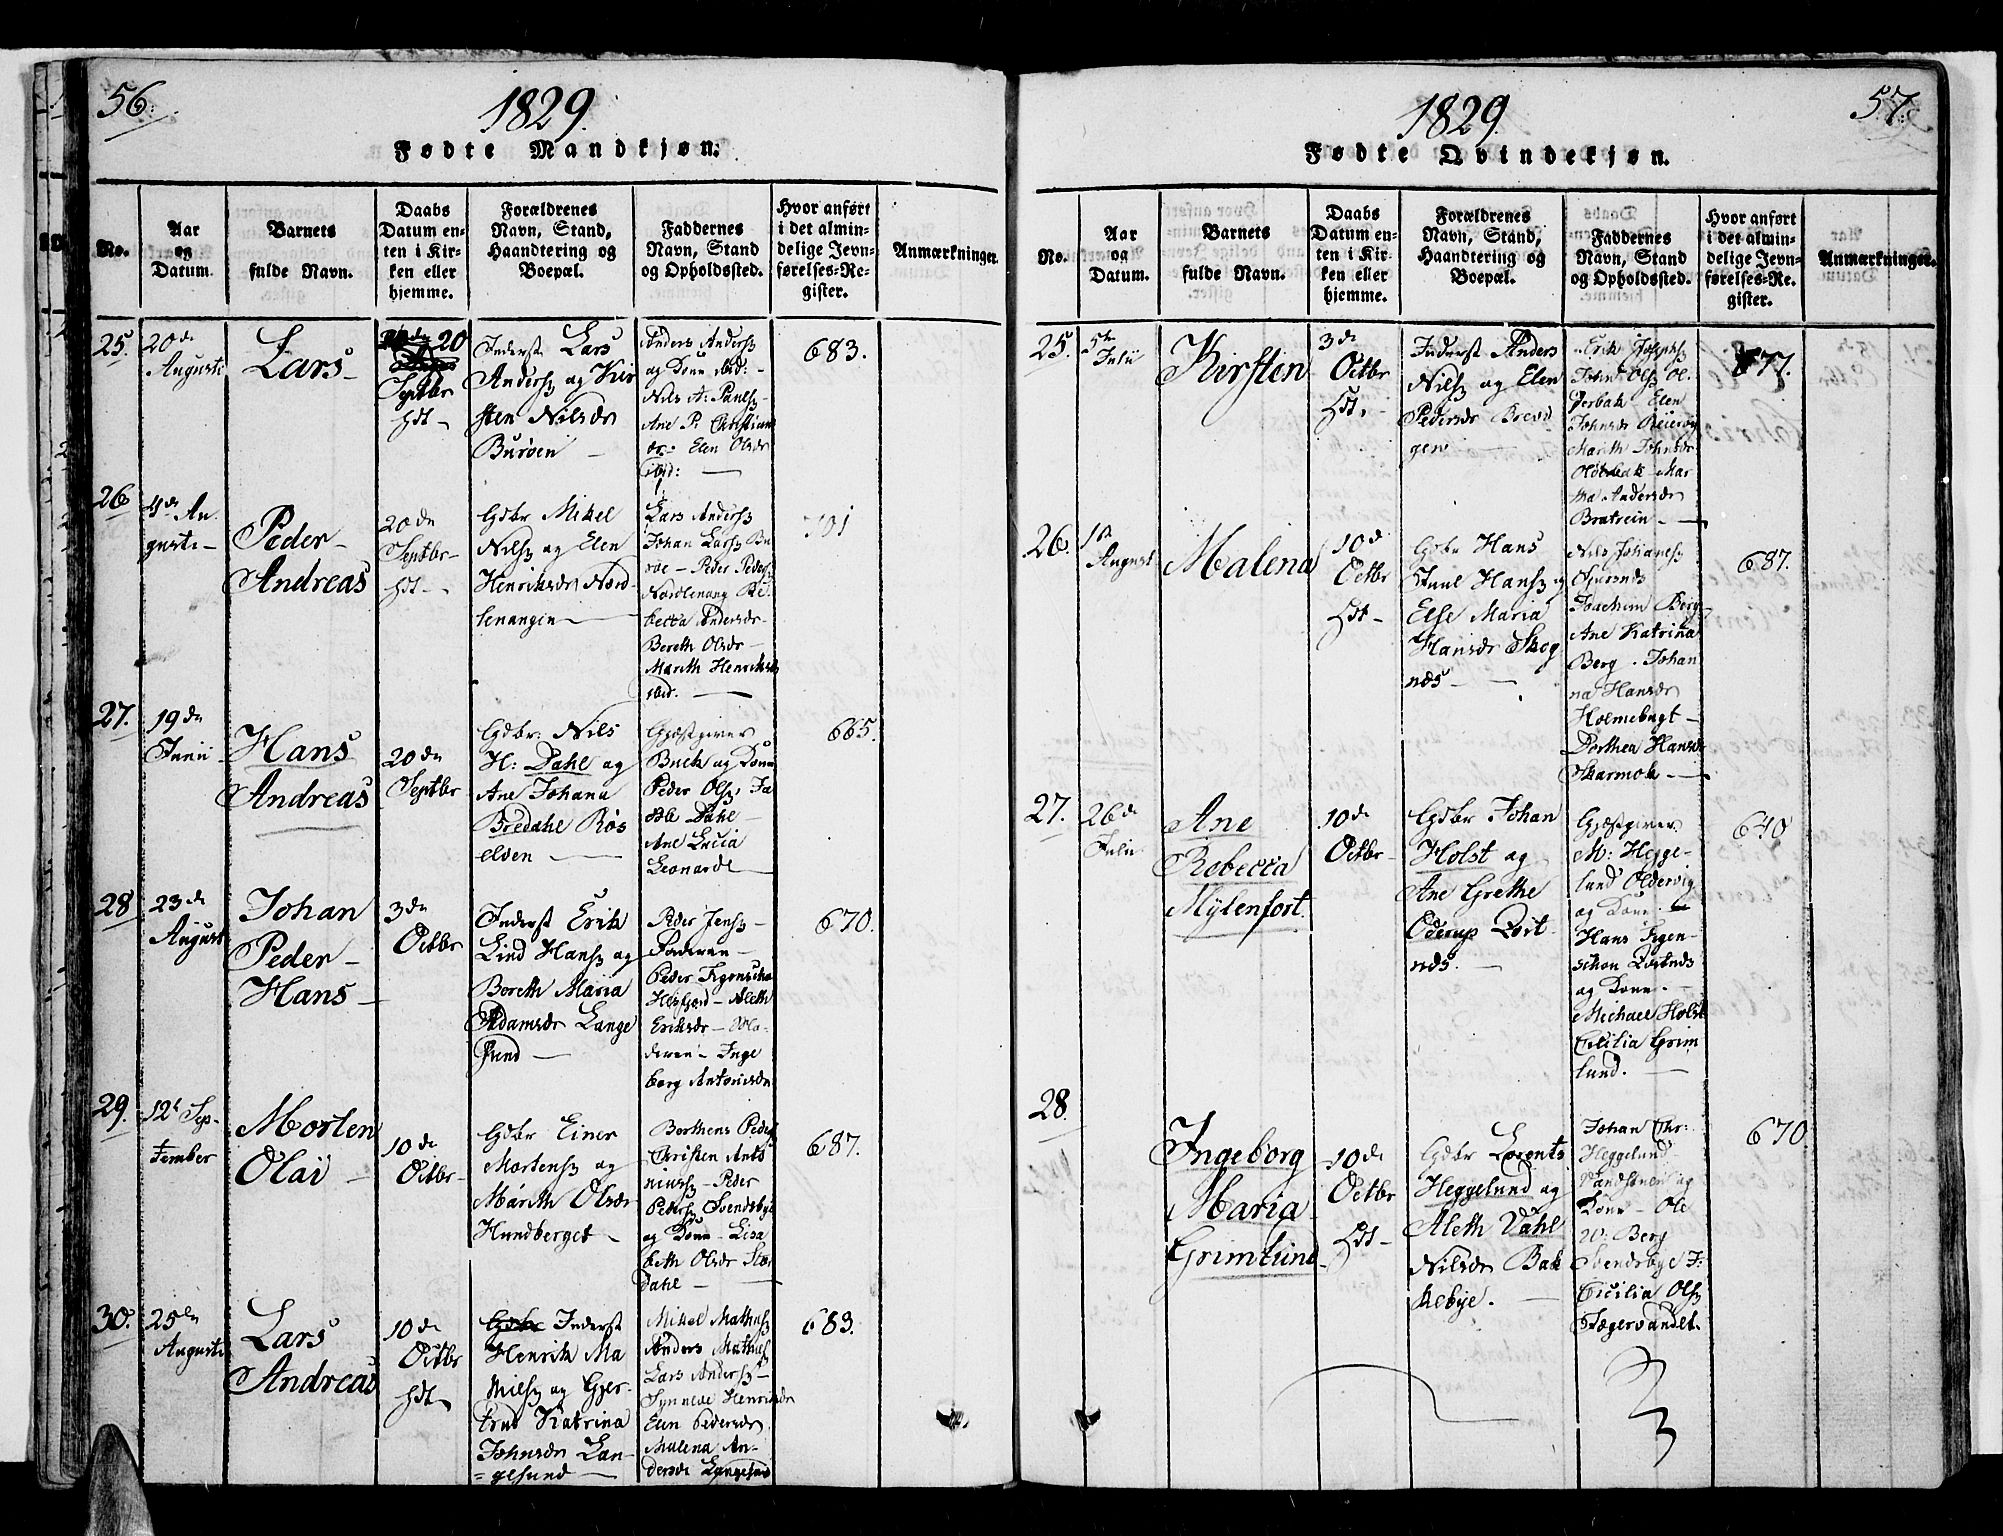 56.
1829.
Fødte Mandkjøn.
No.
Aar
og
Datum.
Barnets
fulde Navn.
Daabs
Datum en-
ten i Kir-
ken eller
hjemme.
Forældrenes
Navn, Stand,
Haandtering og
Boepæl.
Faddernes
Navn, Stand
og Opholdssted.
Hvor anført
i det almin-
delige Jevn-
førelses-Re-
gister.
Anmærkninger.
25.
20de
Augusti
Lars
20
Septbr
hdt
Inderst Lars
Anders. og Kir
sten Nilsdr
Burøen
Anders Anders.
og Kone ibid:
Nils A: Pauls.
Ane P. Christian
dr. Elen Olsdr
ibid:
683.
26
4de Au
gusti
Peder
Andreas
20de
Septbr
hdt
Gdbr Mikel
Nils. og Elen
Henriksdr Nord
lenangen
Lars Anders.
Johan Lars. Bu
røe - Peder Peders.
Nordlenang Re
becca Andersdr
Bereth Olsdr
Marith Henriksdr
ibid.
701
27.
19de
Junii
Hans
Andreas
20de
Septbr
Gdbr: Nils
H: Dahl og
Ane Johana
Bredahl Røs
elven
Gjæstgiver
Buck og Kone
Peder Ols. Ja
Dahl
Ane Lucia
Leonardi
665.
28
23de
August
Johan
Peder
Hans
3de
Octbr
Inderst Erik
Lind Hans. og
Bereth Maria
Adamsdr Lange
sund
Peder Jens.
Peder Figenschou
Aleth
Eriksdr
Inge
borg Antonisdr
670.
29.
12t Sep-
tember
Morten
Olai
10de
Octbr
Gdbr Einer
Mortens. og
Marith Olsdr
Hundberget
Berthens Peders.
Christen Anto
nius. Peder
Peders. Svendsbye
og Kone - Lisa
beth Olsdr Stor
dahl
687.
30.
25de
Augusti
Lars
Andreas
10de
Octbr
hdt
Inderst
Henrik Ma
thies. og Gjer-
trud Katrina
Johnsdr Lan-
gesund
Mikel Mathis.
Anders Mathis.
Lars Anders.
Synneve Henriksdr
Elen Pedersdr
Malena An-
dersdr Langesund
683.
57.
1829.
Fødte Qvindekjøn.
No.
Aar
og
Datum.
Barnets
fulde Navn.
Daabs
Datum en-
ten i Kir-
ken eller
hjemme.
Forældrenes
Navn, Stand,
Haandtering og
Boepæl.
Faddernes
Navn, Stand
og Opholdssted.
Hvor anført
i det almin-
delige Jevn-
førelses-Re-
gister.
Anmærkninger.
25.
5te
Julii
Kirsten
3de
Octbr
hdt.
Inderst Anders
Nils. og Elen
Pedersdr Brevig
gen
Erik Josephs.
John Ols. Ol-
derbak Elen
Johnsdr Reiervog
Marith Johnsdr
Olderbak Mar
tha Andersdr
Bratrein
677.
26.
1te
August
Malena
10de
Octbr
hdt
Gdbr Hans
Juul Hans. og
Else Maria
Hansdr Skog
næs
Nils Johanes.
Joachim Berg
Ane Katrina
Berg. Johan
na Hansdr
Holmebugt
Dorthea Hansdr
Skarmok
687.
27.
26de
Julii
Ane
Rebecca
Mylenfort.
10de
Octbr
Gdbr Johan
Holst og
Ane Grethe
Oderup Rot
næs.
Gjæstgiver
M: Hegge-
lund Oldervig
og Kone.
Hans Figen-
schou Rotnæs
og Kone.
Michael Holst
Cecilia Grim
lund.
640
28.
Ingeborg
Maria
Grimlund
10de
Octbr
hdt
Gdbr Lorents
Heggelund og
Aleth Dahl
Nilsdr Bak
kebye.
Johan Chr:
Heggelund
og
Kone - Ole
W: Berg
Svendsbye J:
Cicilia Ols.
Jægervandet.
670.